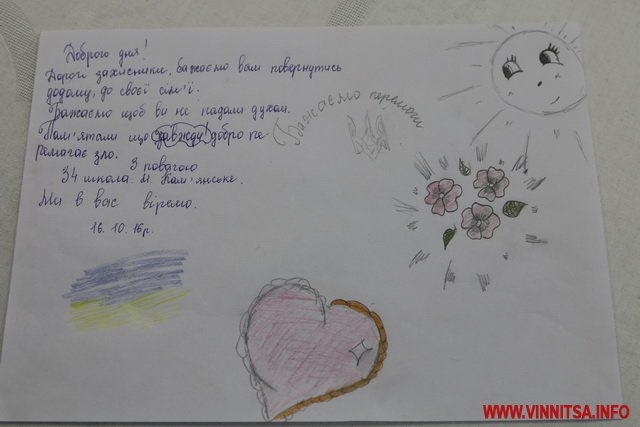 Доброго дня!
Дорогі захисники, бажаємо вам повернутись
додому, до своєї сім'ї.
Бажаємо щоб ви не падали духом.
Пам'ятали що завжди! добро пе-
ремагає зло.
З повагою
34 школа. м. Кам'янське.
Ми в вас віремо.
16. 10. 16р.
Бажаємо перемоги
WWW.VINNITSA.INFO